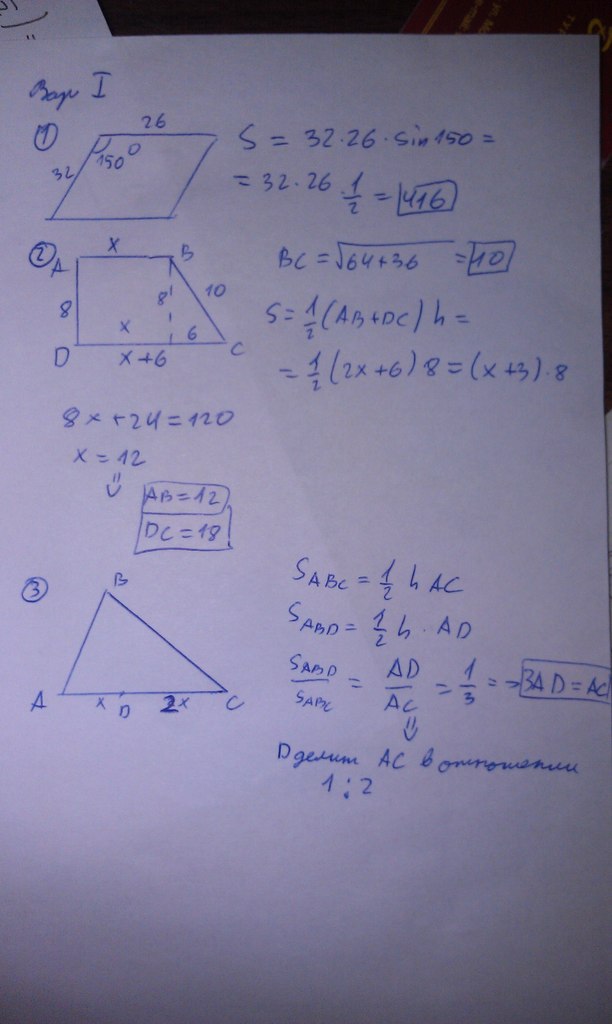 Вар I
① 26
32 150° S = 32·26·sin150 =
= 32·26·1/2 = 416
② A x B
8 8 10 BC = √64+36 = 10
D x 6 C
x+6
S = 1/2 (AB+DC) h =
= 1/2 (2x+6) 8 = (x+3)·8
8x+24=120
x = 12
⇓
AB=12
DC=18
③ B
A x D 2x C
S ABC = 1/2 h AC
S ABD = 1/2 h · AD
S ABD / S ABC = AD / AC = 1/3 => 3AD=AC
⇓
D делит AC в отношении
1:2